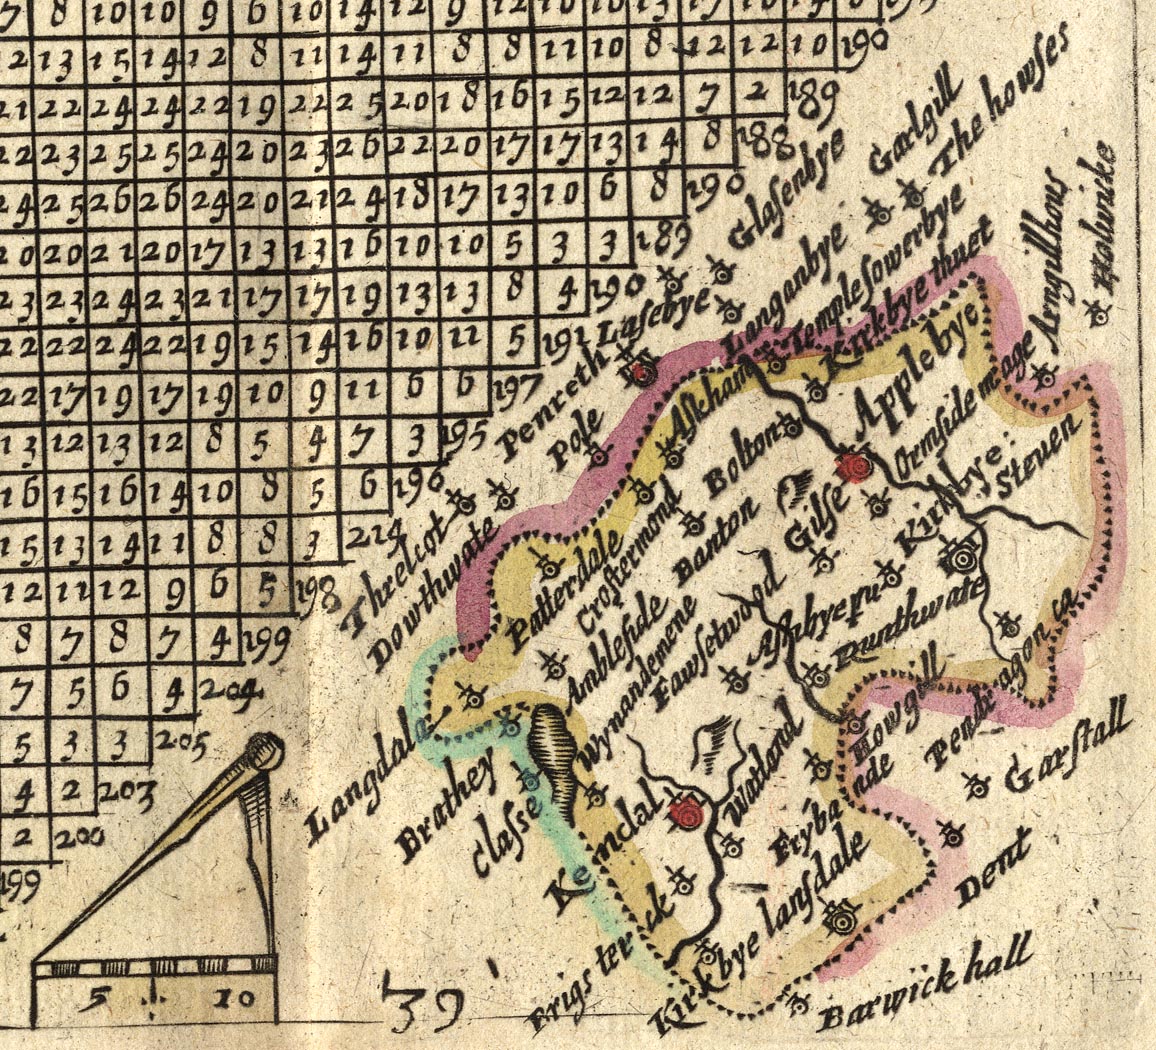 7 8 10 10 9 6 10 14 12 9 12 10 10 13 17
2 13 15 14 12 8 11 14 11 8 8 11 10 8 12 12 10 190
21 22 24 24 22 19 22 25 20 18 16 15 12 12 7 2 189
22 23 25 25 24 20 23 26 22 20 17 17 13 14 8 188
24 25 26 26 24 20 21 24 18 17 13 10 6 8 190
20 20 21 20 17 13 13 16 10 10 5 3 3 189
23 23 24 23 21 17 17 19 13 13 8 4 190
22 22 24 22 19 15 14 16 10 11 5 191
22 17 19 17 19 10 9 11 6 6 197
13 12 13 12 8 5 4 7 3 195
16 15 16 14 10 8 5 6 196
15 13 14 11 8 8 3 214
12 11 12 9 6 5 198
8 7 8 7 4 199
7 5 6 4 204
5 3 3 205
4 2 203
2 200
199
5 10
39
The howſes
Garlgill
Glaſenbye
Laſebye
Langanbye
Templeſowerbye
Kirkbye thuet
Arngillhous
Holunicke
Penreth
Pole
Aſkham
Applebye
Ormſide
Bolton
Kirkbye Steuen
Threlcot
Dowthwate
Patterdale
Croftermond
Banton
Gilſe
Ambleſide
Wynandemene
Fawſetwood
Aſhbye
Runthwate
Pendragon ca
Howgill
Langdala
Brathey
Claſse
Kendal
Watland
Garſtall
Dent
Brigsterick
Kirkbye lanſdale
Barwick hall